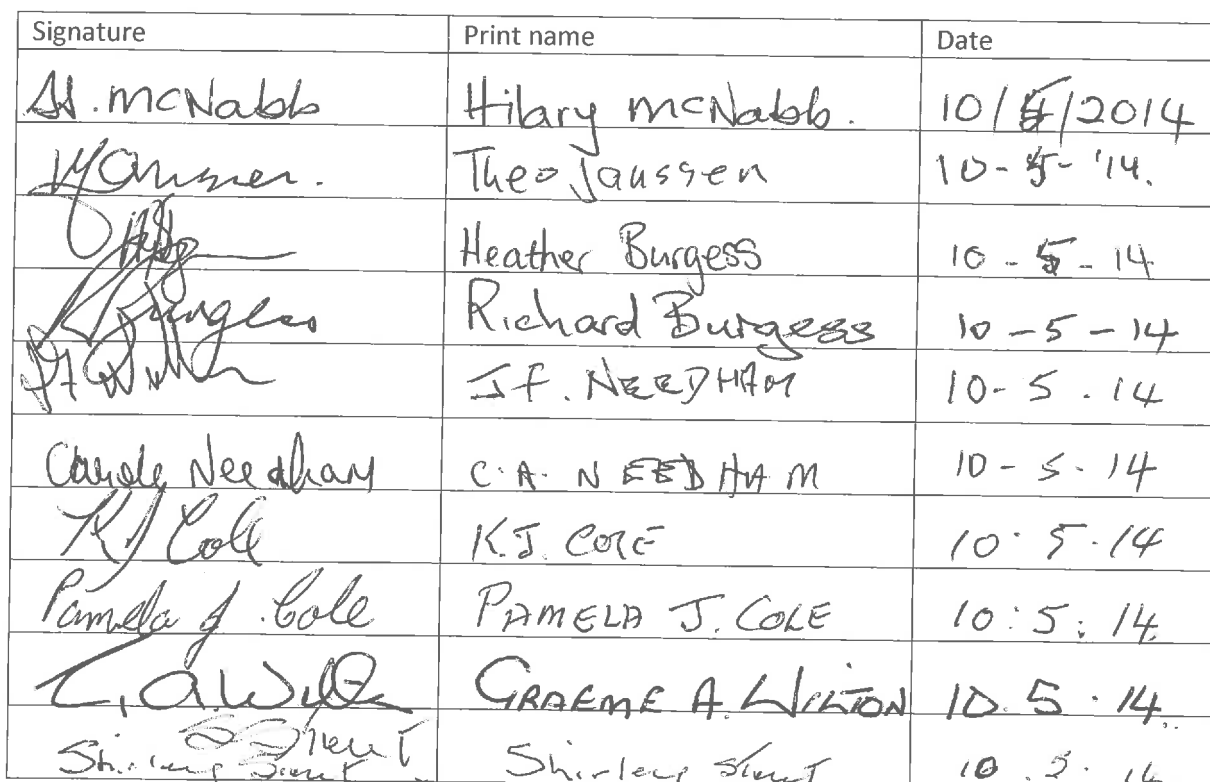 Signature Print name Date
H. McNabb Hilary McNabb. 10/5/2014
Theo Janssen 10-5-'14.
Heather Burgess 10-5-14
Burgess Richard Burgess 10-5-14
J F. NEEDHAM 10-5.14
Carole Needham C.A. NEEDHAM 10-5.14
KJ Cole K.J. COLE 10.5.14
Pamela J. Cole PAMELA J. COLE 10:5:14.
GRAEME A. WILTON 10.5.14.
Shirley Shirley 10.5.14